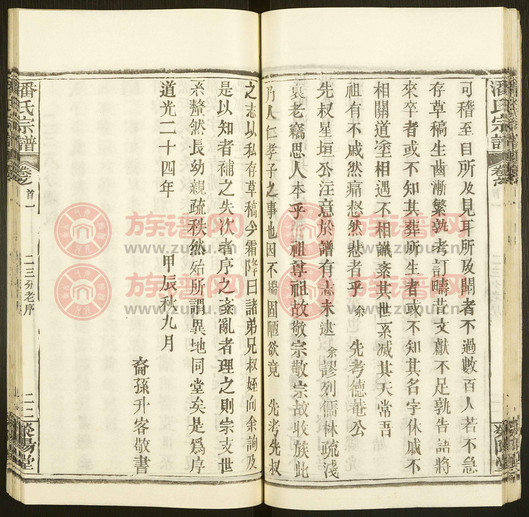 可稽至目所及見耳所及聞者不過數百人若不急
存草稿生齒漸繁孰考訂疇昔文獻不足孰告語將
來卒者或不知其葬所生者或不知其名字休戚不
相關道塗相遇不相識紊其世系滅其天常吾
祖有不戚然痛愀然悲者乎 余 先考德蓭公
先叔星垣公注意於譜有志未逮余謬列儒林疏淺
衰老竊思人本乎祖尊祖故敬宗敬宗故收族此
乃人仁孝子之事也因不揣固陋欲竟 先考先叔
之志以私存草稿今霜降日諸弟兄叔姪向余詢及
是以知者補之失次者序之紊亂者理之則宗支世
系釐然長幼親疏秩然始所謂異地同堂矣是爲序
道光二十四年 甲辰秋九月
裔孫升客敬書
潘氏宗譜
卷之首一
二三分老序
二二
滎陽堂
潘氏宗譜
族譜网
www.zupu.cn
族譜网
www.zupu.cn
族譜网
www.zupu.cn
族譜网
www.zupu.cn